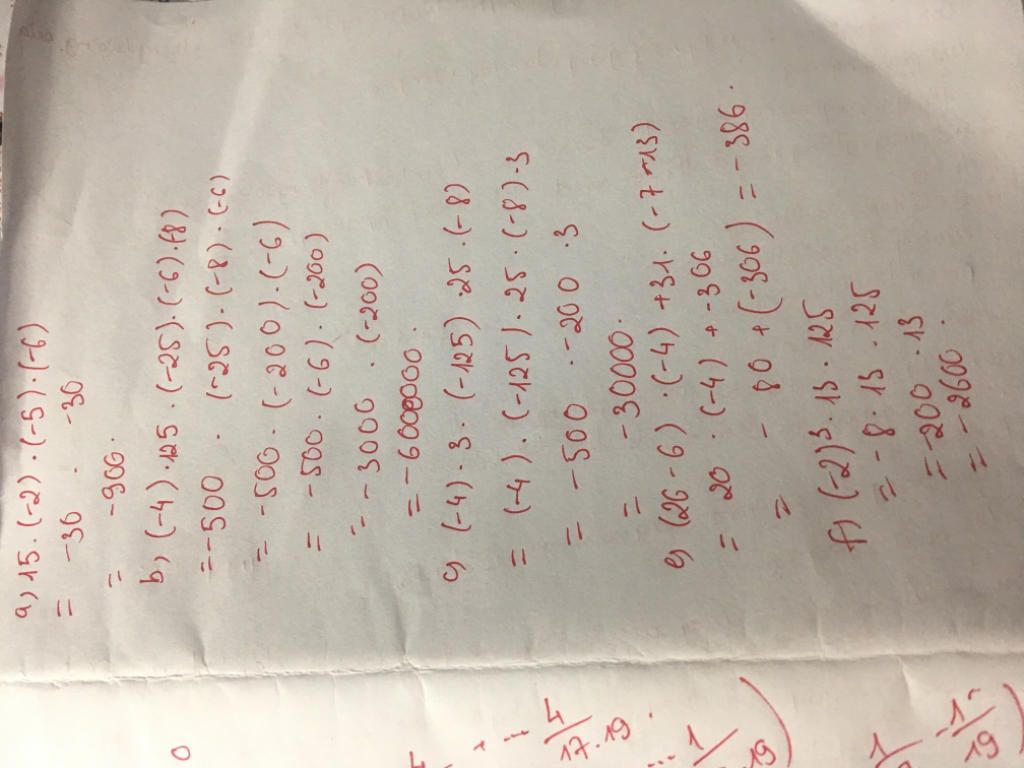 a) 15 . (-2) . (-5) . (-6)
= -30 . -30
= -900.
b) (-4) . 125 . (-25) . (-6) . (-8)
= -500 . (-25) . (-8) . (-6)
= -500 . (-200) . (-6)
= -500 . (-6) . (-200)
= -3000 . (-200)
= -6000000.
(-4) . 3 . (-125) . 25 . (-8)
= (-4) . (-125) . 25 . (-8) . 3
= -500 . -200 . 3
= -30000.
e) (26 - 6) . (-4) + 31 . (-7 - 13)
= 20 . (-4) + -306
= - 80 + (-306) = -386.
f) (-2)3 . 13 . 125
= -8 . 13 . 125
= -200 . 13
= -2600.
0
... 4/17.19.
... 1
.19)
1
-1
19)